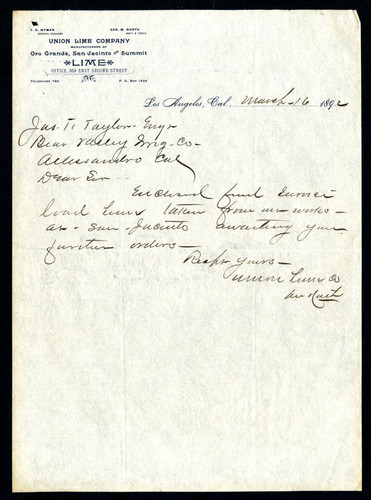 GEO. M. NORTH
UNION LIME COMPANY
MANUFACTURERS OF
Oro Grande, San Jacinto and Summit
LIME
OFFICE, EAST SECOND STREET
P. O. Box
Los Angeles, Cal., March 16 1892
Jas. T. Taylor Engr
Bear Valley Irrig. Co.
Allessandro Cal
Dear Sir
Enclosed find
load Lime taken from our works
San Jacinto awaiting your
further orders
Respt Yours
Union Lime Co
North